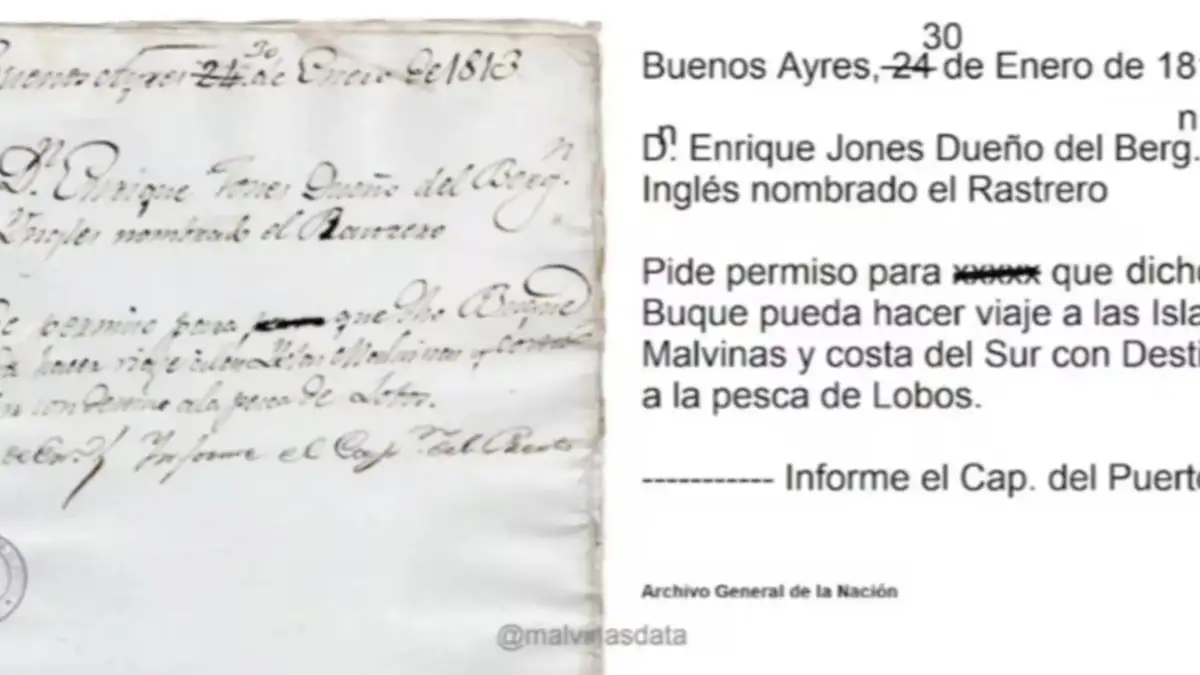 Buenos Ayres 24 30 de Enero de 1813
Dn. Enrique Jones Dueño del Bergn.
Ingles nombrado el Rastrero
permiso para que dho Buque
hacer viaje a las Islas Malvinas y costa
con destino a la pesca de Lobos.
de En.o / Informe el Capn. del Puerto
30
Buenos Ayres, 24 de Enero de 18
n
Dn. Enrique Jones Dueño del Berg.
Inglés nombrado el Rastrero
Pide permiso para xxxxx que dicho
Buque pueda hacer viaje a las Isla
Malvinas y costa del Sur con Desti
a la pesca de Lobos.
----------- Informe el Cap. del Puerto
Archivo General de la Nación
@malvinasdata